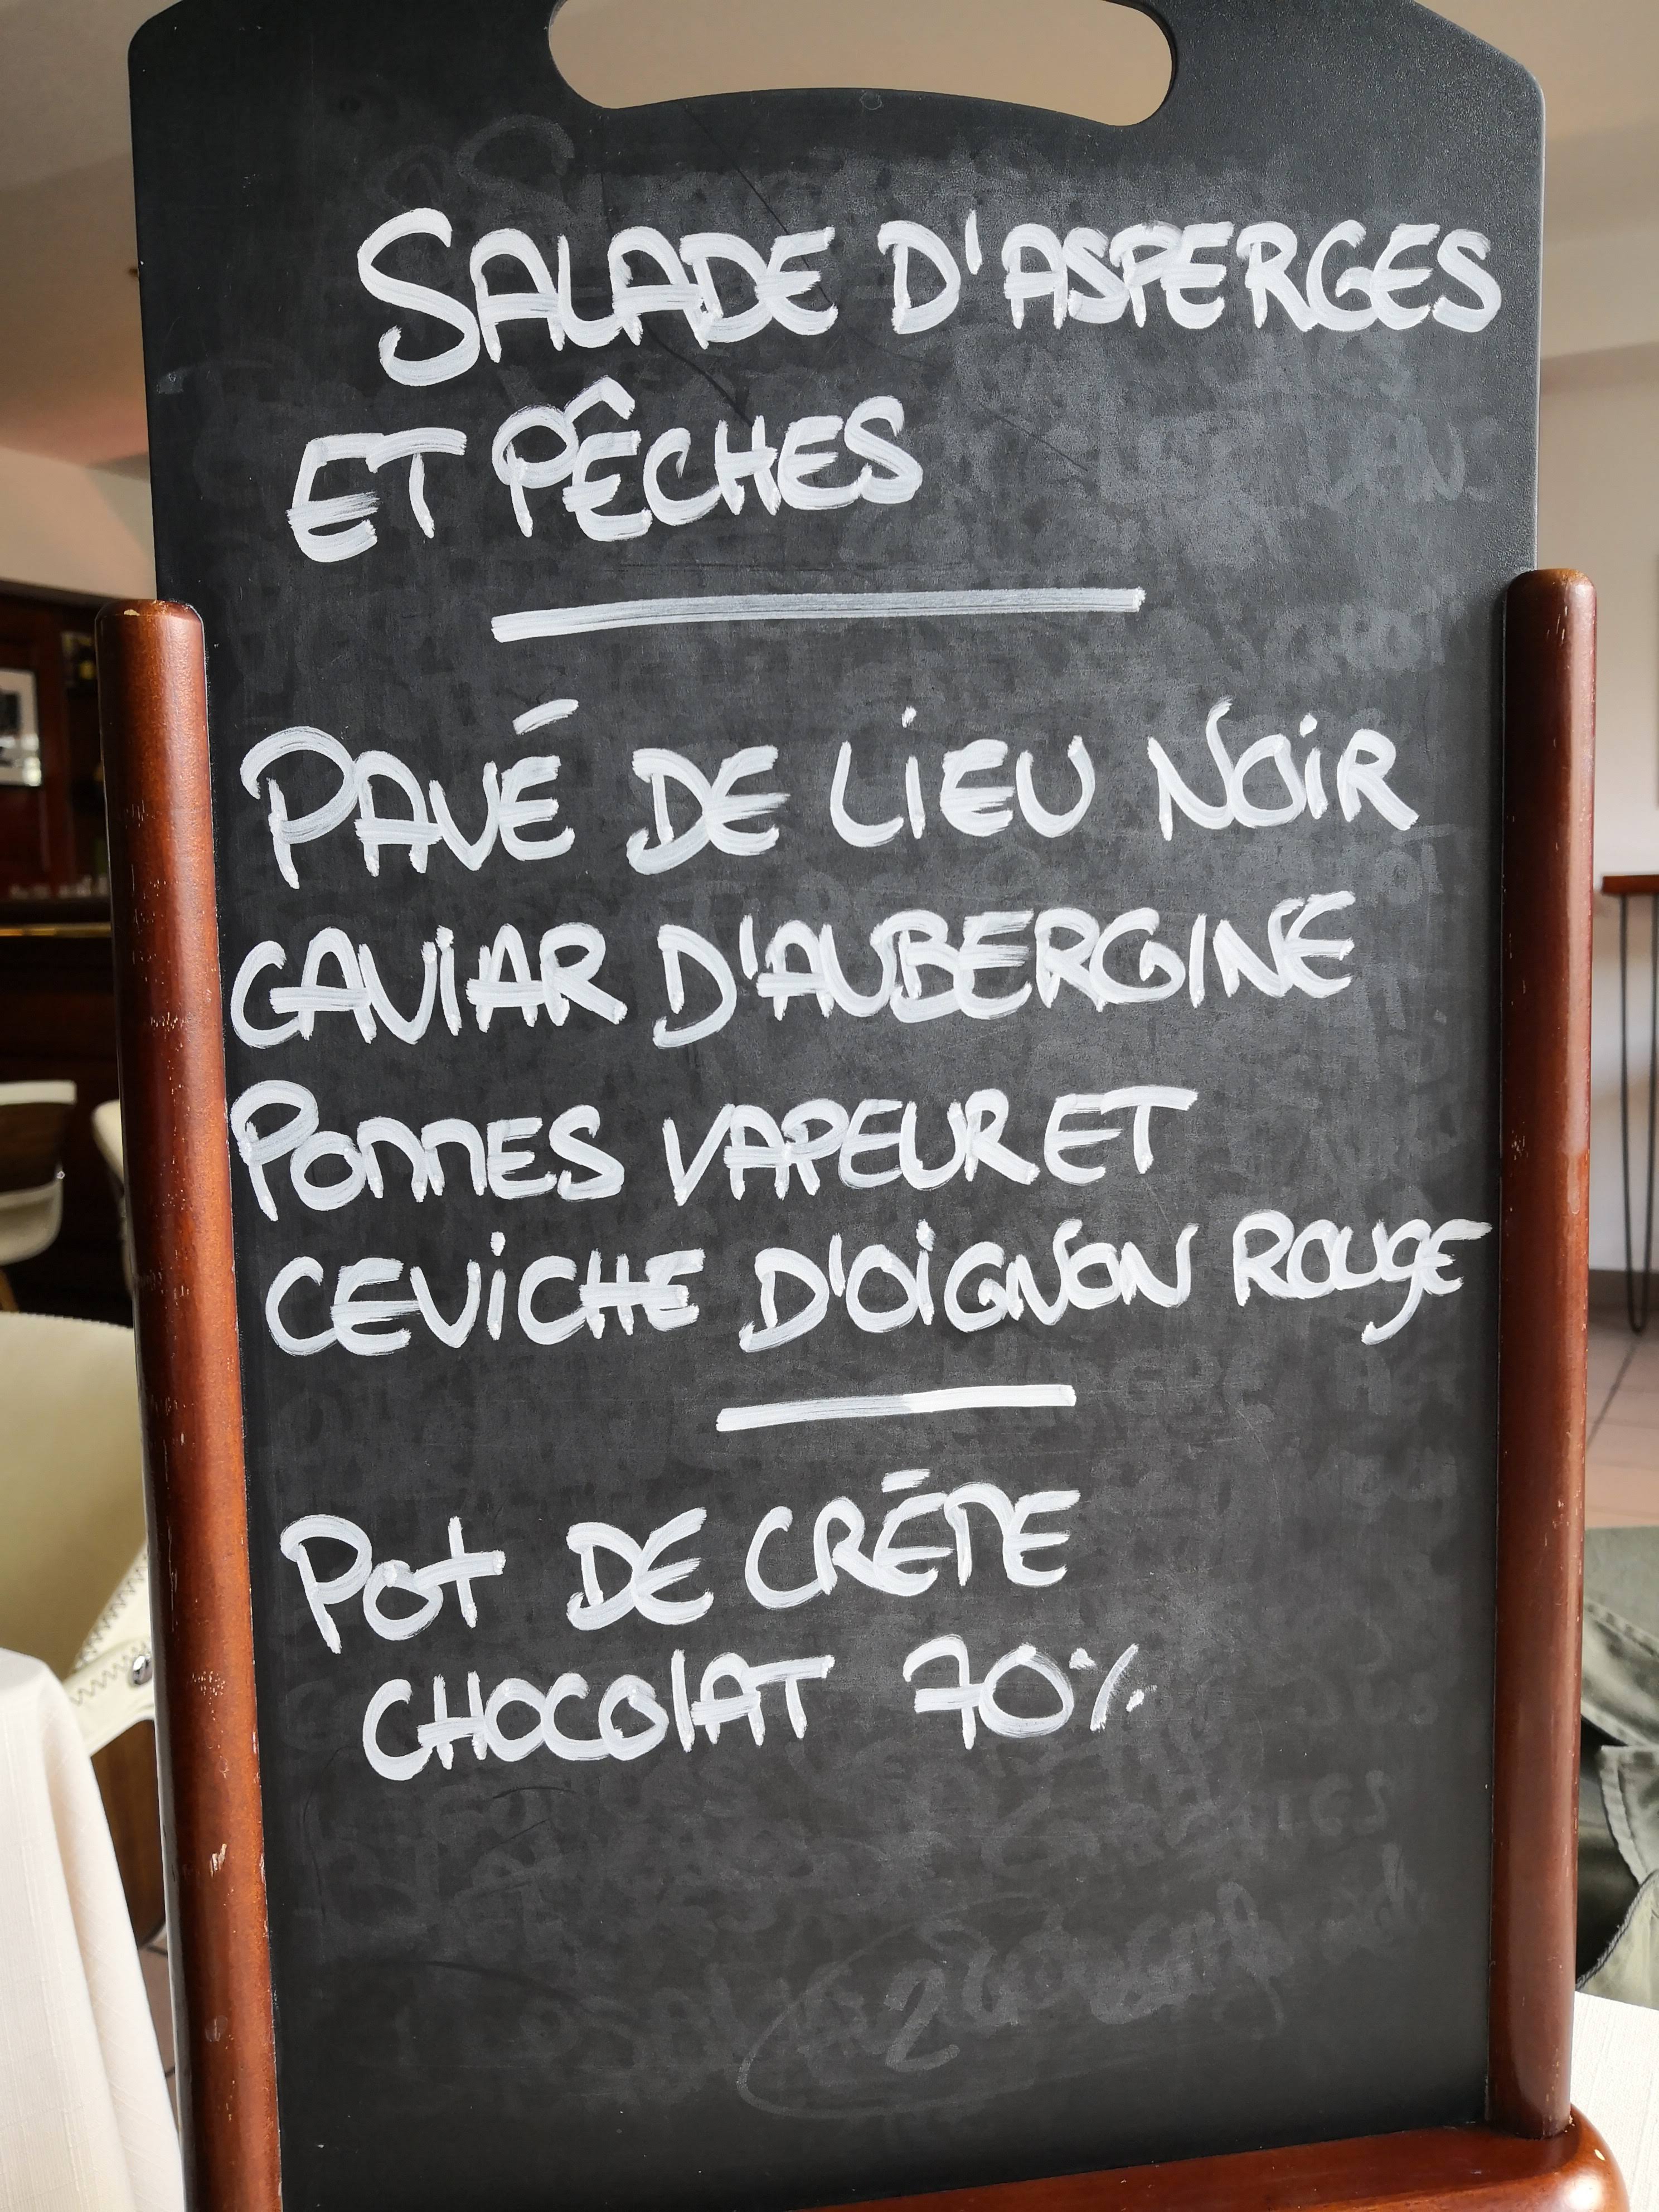 SALADE D'ASPERGES
ET PÊCHES
PAVÉ DE LIEU NOIR
CAVIAR D'AUBERGINE
POMMES VAPEUR ET
CEVICHE D'OIGNON ROUGE
POT DE CRÈME
CHOCOLAT 70%